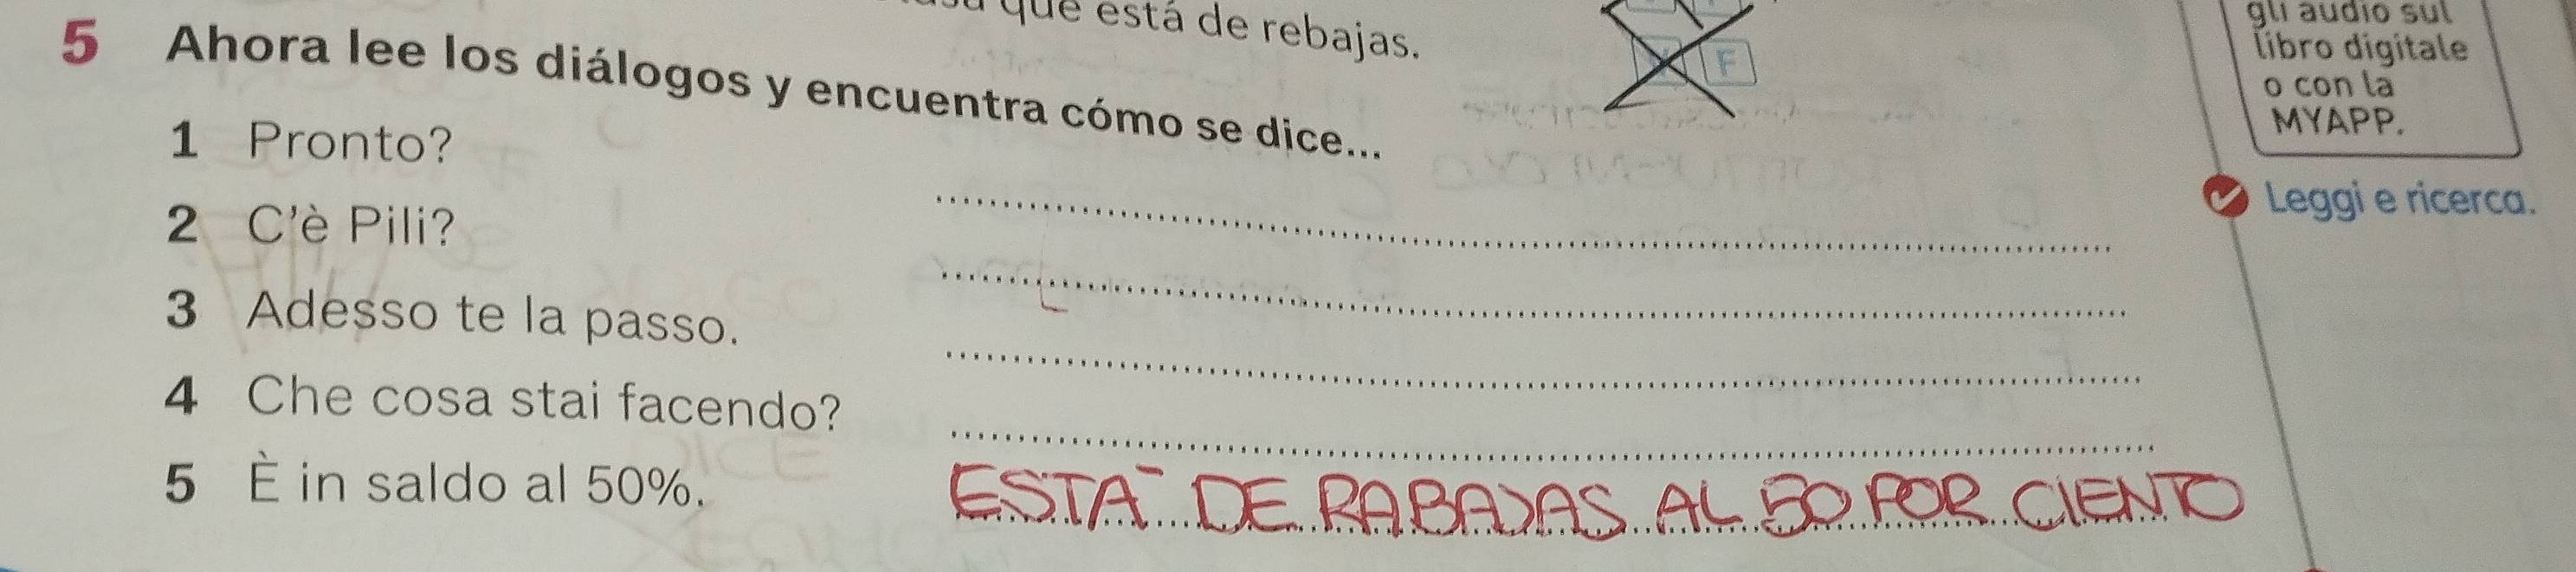 que está de rebajas.
F
5 Ahora lee los diálogos y encuentra cómo se dice...
1 Pronto?
2 C'è Pili?
3 Adesso te la passo.
4 Che cosa stai facendo?
5 È in saldo al 50%. ESTÁ DE RABAJAS AL 50 POR CIENTO
gli audio sul
libro digitale
o con la
MYAPP.
Leggi e ricerca.